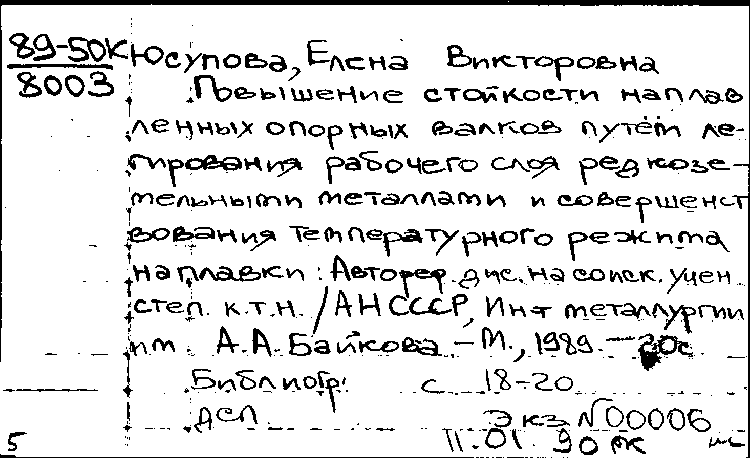 89-50К Юсупова, Елена Викторовна
8003 Повышение стойкости наплав
ленных опорных валков путём ле-
гирования рабочего слоя редкозе-
мельными металлами и совершенст
вования температурного режима
наплавки: Автореф. дис. на соиск. учен.
степ. к.т.н. / АН СССР, Ин-т металлургии
им. А.А. Байкова. - М., 1989. - 20с
Библиогр: с 18-20
ДСП Экз N00006
5 11.01.90